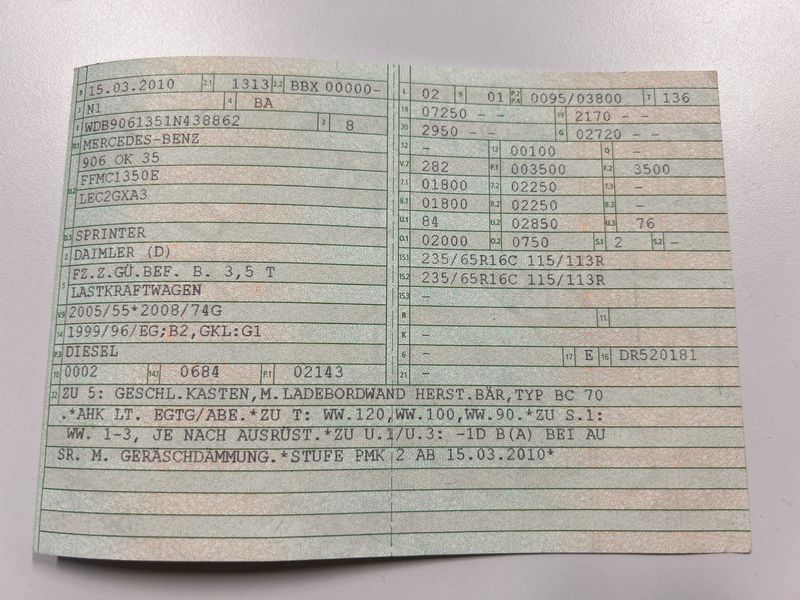 B 15.03.2010 2.1 1313 2.2 BBX 00000-
J N1 4 BA
E WDB9061351N438862 3 8
D.1 MERCEDES-BENZ
906 OK 35
D.2 FFMC1350E
LEC2GXA3
D.3 SPRINTER
2 DAIMLER (D)
5 FZ.Z.GÜ.BEF. B. 3,5 T
LASTKRAFTWAGEN
V.9 2005/55*2008/74G
14 1999/96/EG;B2,GKL:G1
P.3 DIESEL
10 0002 14.1 0684 P.1 02143
L 02 9 01 P.2 P.4 0095/03800 T 136
18 07250 - - 19 2170 - -
20 2950 - - G 02720 - -
12 - 13 00100 Q -
V.7 282 F.1 003500 F.2 3500
7.1 01800 7.2 02250 7.3 -
8.1 01800 8.2 02250 8.3 -
U.1 84 U.2 02850 U.3 76
O.1 02000 O.2 0750 S.1 2 S.2 -
15.1 235/65R16C 115/113R
15.2 235/65R16C 115/113R
15.3 -
R - 11
K -
6 - 17 E 16 DR520181
21 -
22 ZU 5: GESCHL.KASTEN,M.LADEBORDWAND HERST.BÄR,TYP BC 70
.*AHK LT. EGTG/ABE.*ZU T: WW.120,WW.100,WW.90.*ZU S.1:
WW. 1-3, JE NACH AUSRÜST.*ZU U.1/U.3: -1D B(A) BEI AU
SR. M. GERÄSCHDÄMMUNG.*STUFE PMK 2 AB 15.03.2010*